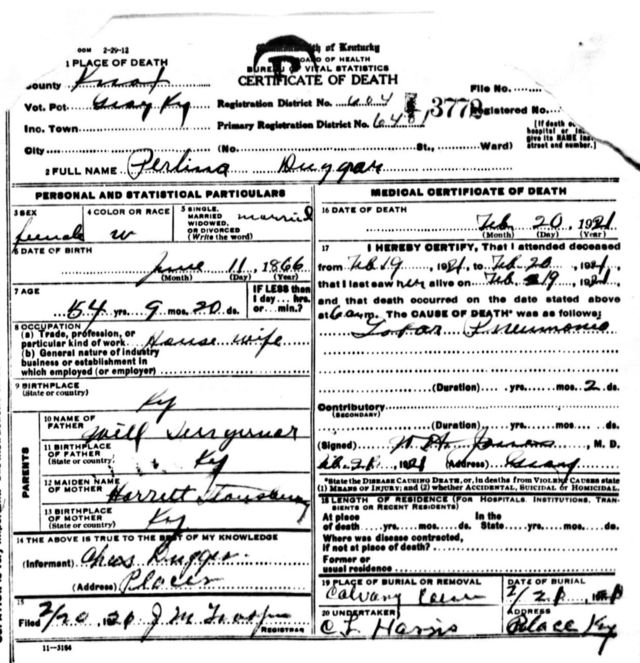 OOM 2-29-12
of Kentucky
BOARD OF HEALTH
BUREAU OF VITAL STATISTICS
CERTIFICATE OF DEATH
1 PLACE OF DEATH
County Knox
Vot. Pct. Gray Ky
Inc. Town
City (No. St., Ward)
Registration District No. 604
Primary Registration District No.
3772
File No.
Registered No.
[If death o
hospital or in
give its NAME
street and number.]
2 FULL NAME Perlina Duggar
PERSONAL AND STATISTICAL PARTICULARS
3 SEX female
4 COLOR OR RACE w
5 SINGLE, MARRIED WIDOWED, OR DIVORCED (Write the word) married
6 DATE OF BIRTH
June 11, 1866
(Month) (Day) (Year)
7 AGE
54 yrs. 9 mos. 20 ds.
IF LESS than 1 day... hrs. or... min.?
8 OCCUPATION
(a) Trade, profession, or
particular kind of work House wife
(b) General nature of industry
business or establishment in
which employed (or employer)
9 BIRTHPLACE
(State or country) Ky
PARENTS
10 NAME OF FATHER Will
11 BIRTHPLACE OF FATHER (State or country) Ky
12 MAIDEN NAME OF MOTHER Harrett
13 BIRTHPLACE OF MOTHER (State or country) Ky
14 THE ABOVE IS TRUE TO THE BEST OF MY KNOWLEDGE
(Informant)
(Address)
15
Filed 2/20, 192 J M
REGISTRAR
11-3184
MEDICAL CERTIFICATE OF DEATH
16 DATE OF DEATH
Feb 20, 1921
(Month) (Day) (Year)
17 I HEREBY CERTIFY, That I attended deceased
from Feb 19, 1921, to Feb 20, 1921,
that I last saw her alive on Feb 19, 1921,
and that death occurred on the date stated above
at 6 am. The CAUSE OF DEATH* was as follows:
Lobar Pneumonia
(Duration) yrs. mos. 2 ds.
Contributory
(SECONDARY)
(Duration) yrs. mos. ds.
(Signed) M. D.
1921 (Address) Gray
*State the DISEASE CAUSING DEATH, or, in deaths from VIOLENT CAUSES state
(1) MEANS OF INJURY; and (2) whether ACCIDENTAL, SUICIDAL or HOMICIDAL.
18 LENGTH OF RESIDENCE (FOR HOSPITALS, INSTITUTIONS, TRANSIENTS OR RECENT RESIDENTS)
At place of death yrs. mos. ds. In the State yrs. mos. ds.
Where was disease contracted,
if not at place of death?
Former or
usual residence
19 PLACE OF BURIAL OR REMOVAL
Calvary
DATE OF BURIAL
20 UNDERTAKER
C L Harris
ADDRESS
Ky